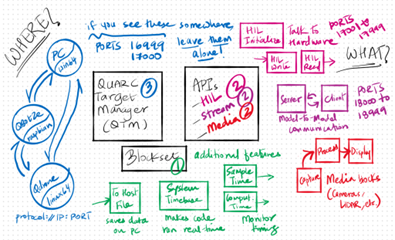 WHERE?
if you see these somewhere
PORTS 16999
17000
leave them
alone!
HIL
Initialize
Talk to
Hardware
PORTS
17001 to
17999
HIL
Write
HIL
Read
WHAT?
PC
win64
QUARC
Target
Manager
(QTM)
3
APIs
HIL 2
stream 2
Media 2
Server
Client
PORTS
18000 to
18999
Model-To-Model
communication
Blockset
1
additional features
To Host
File
saves data
on PC
System
Timebase
makes code
run real-time
Sample
Time
Comput.
Time
Monitor
timing
Capture
Process
Display
Media blocks
(cameras,
LIDAR, etc)
protocol://IP:PORT